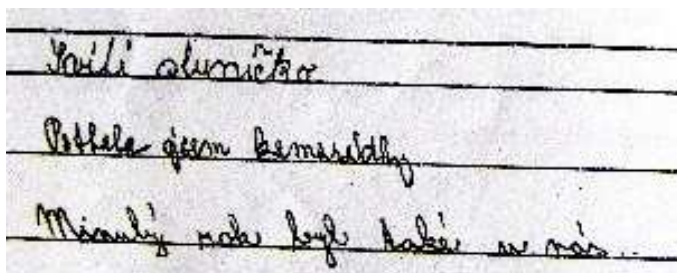 Svítí sluníčko
Potkala jsem kamarádky
Minulý rok byl také u nás..